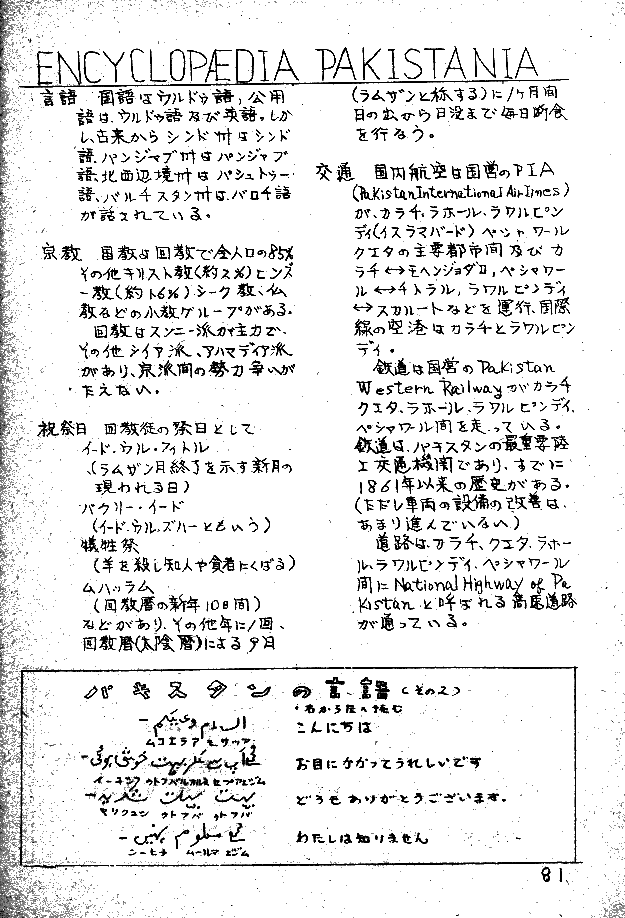 ENCYCLOPÆDIA PAKISTANIA
言語 国語はウルドゥ語, 公用
語は、ウルドゥ語及び英語。しか
し、古来から シンド州はシンド
語、パンジャブ州は パンジャブ
語、北西辺境州は パシュトゥー
語、バルチスタン州は、バロチ語
が話されている。
宗教 国教は回教で全人口の85%
その他キリスト教(約2%)ヒンズ
ー教(約1.6%)シーク教、仏
教などの小数グループがある。
回教はスンニー派が主力で、
その他シイア派、アハマディア派
があり、宗派間の勢力争いが
たえない。
祝祭日 回教徒の祭日として
イード・ウル・フィトル
(ラムザン月終了を示す新月の
現われる日)
バクリー・イード
(イード・ウル・ズハーともいう)
犠牲祭
(羊を殺し知人や貧者にくばる)
ムハッラム
(回教暦の新年10日間)
などがあり、その他年に1回、
回教暦(太陰暦)による9月
(ラムザンと称する)に1ヶ月間
日の出から日没まで毎日断食
を行なう。
交通 国内航空は国営のPIA
(Pakistan International Airlines)
が、カラチ、ラホール、ラワルピン
ディ(イスラマバード)ペシャワール
クエタの主要都市間及びカ
ラチ↔モヘンジョダロ, ペシャワー
ル↔チトラル, ラワルピンディ
↔スカルートなどを運行、国際
線の空港はカラチとラワルピン
ディ。
鉄道は国営の Pakistan
Western Railway がカラチ
クエタ、ラホール、ラワルピンディ、
ペシャワール間を走っている。
鉄道は、パキスタンの最重要陸
上交通機関であり、すでに
1861年以来の歴史がある。
(ただし車両の設備の改善は、
あまり進んでいない)
道路は、カラチ、クエタ、ラホー
ル、ラワルピンディ、ペシャワール
間に National Highway of Pa
kistan と呼ばれる高速道路
が通っている。
パキスタンの言語(その2)
・右から左へ読む
السلام و علیکم -
ムコエラア モサッア
こんにちは
お目にかかってうれしいです
どうもありがとうございます。
わたしは知りません
81